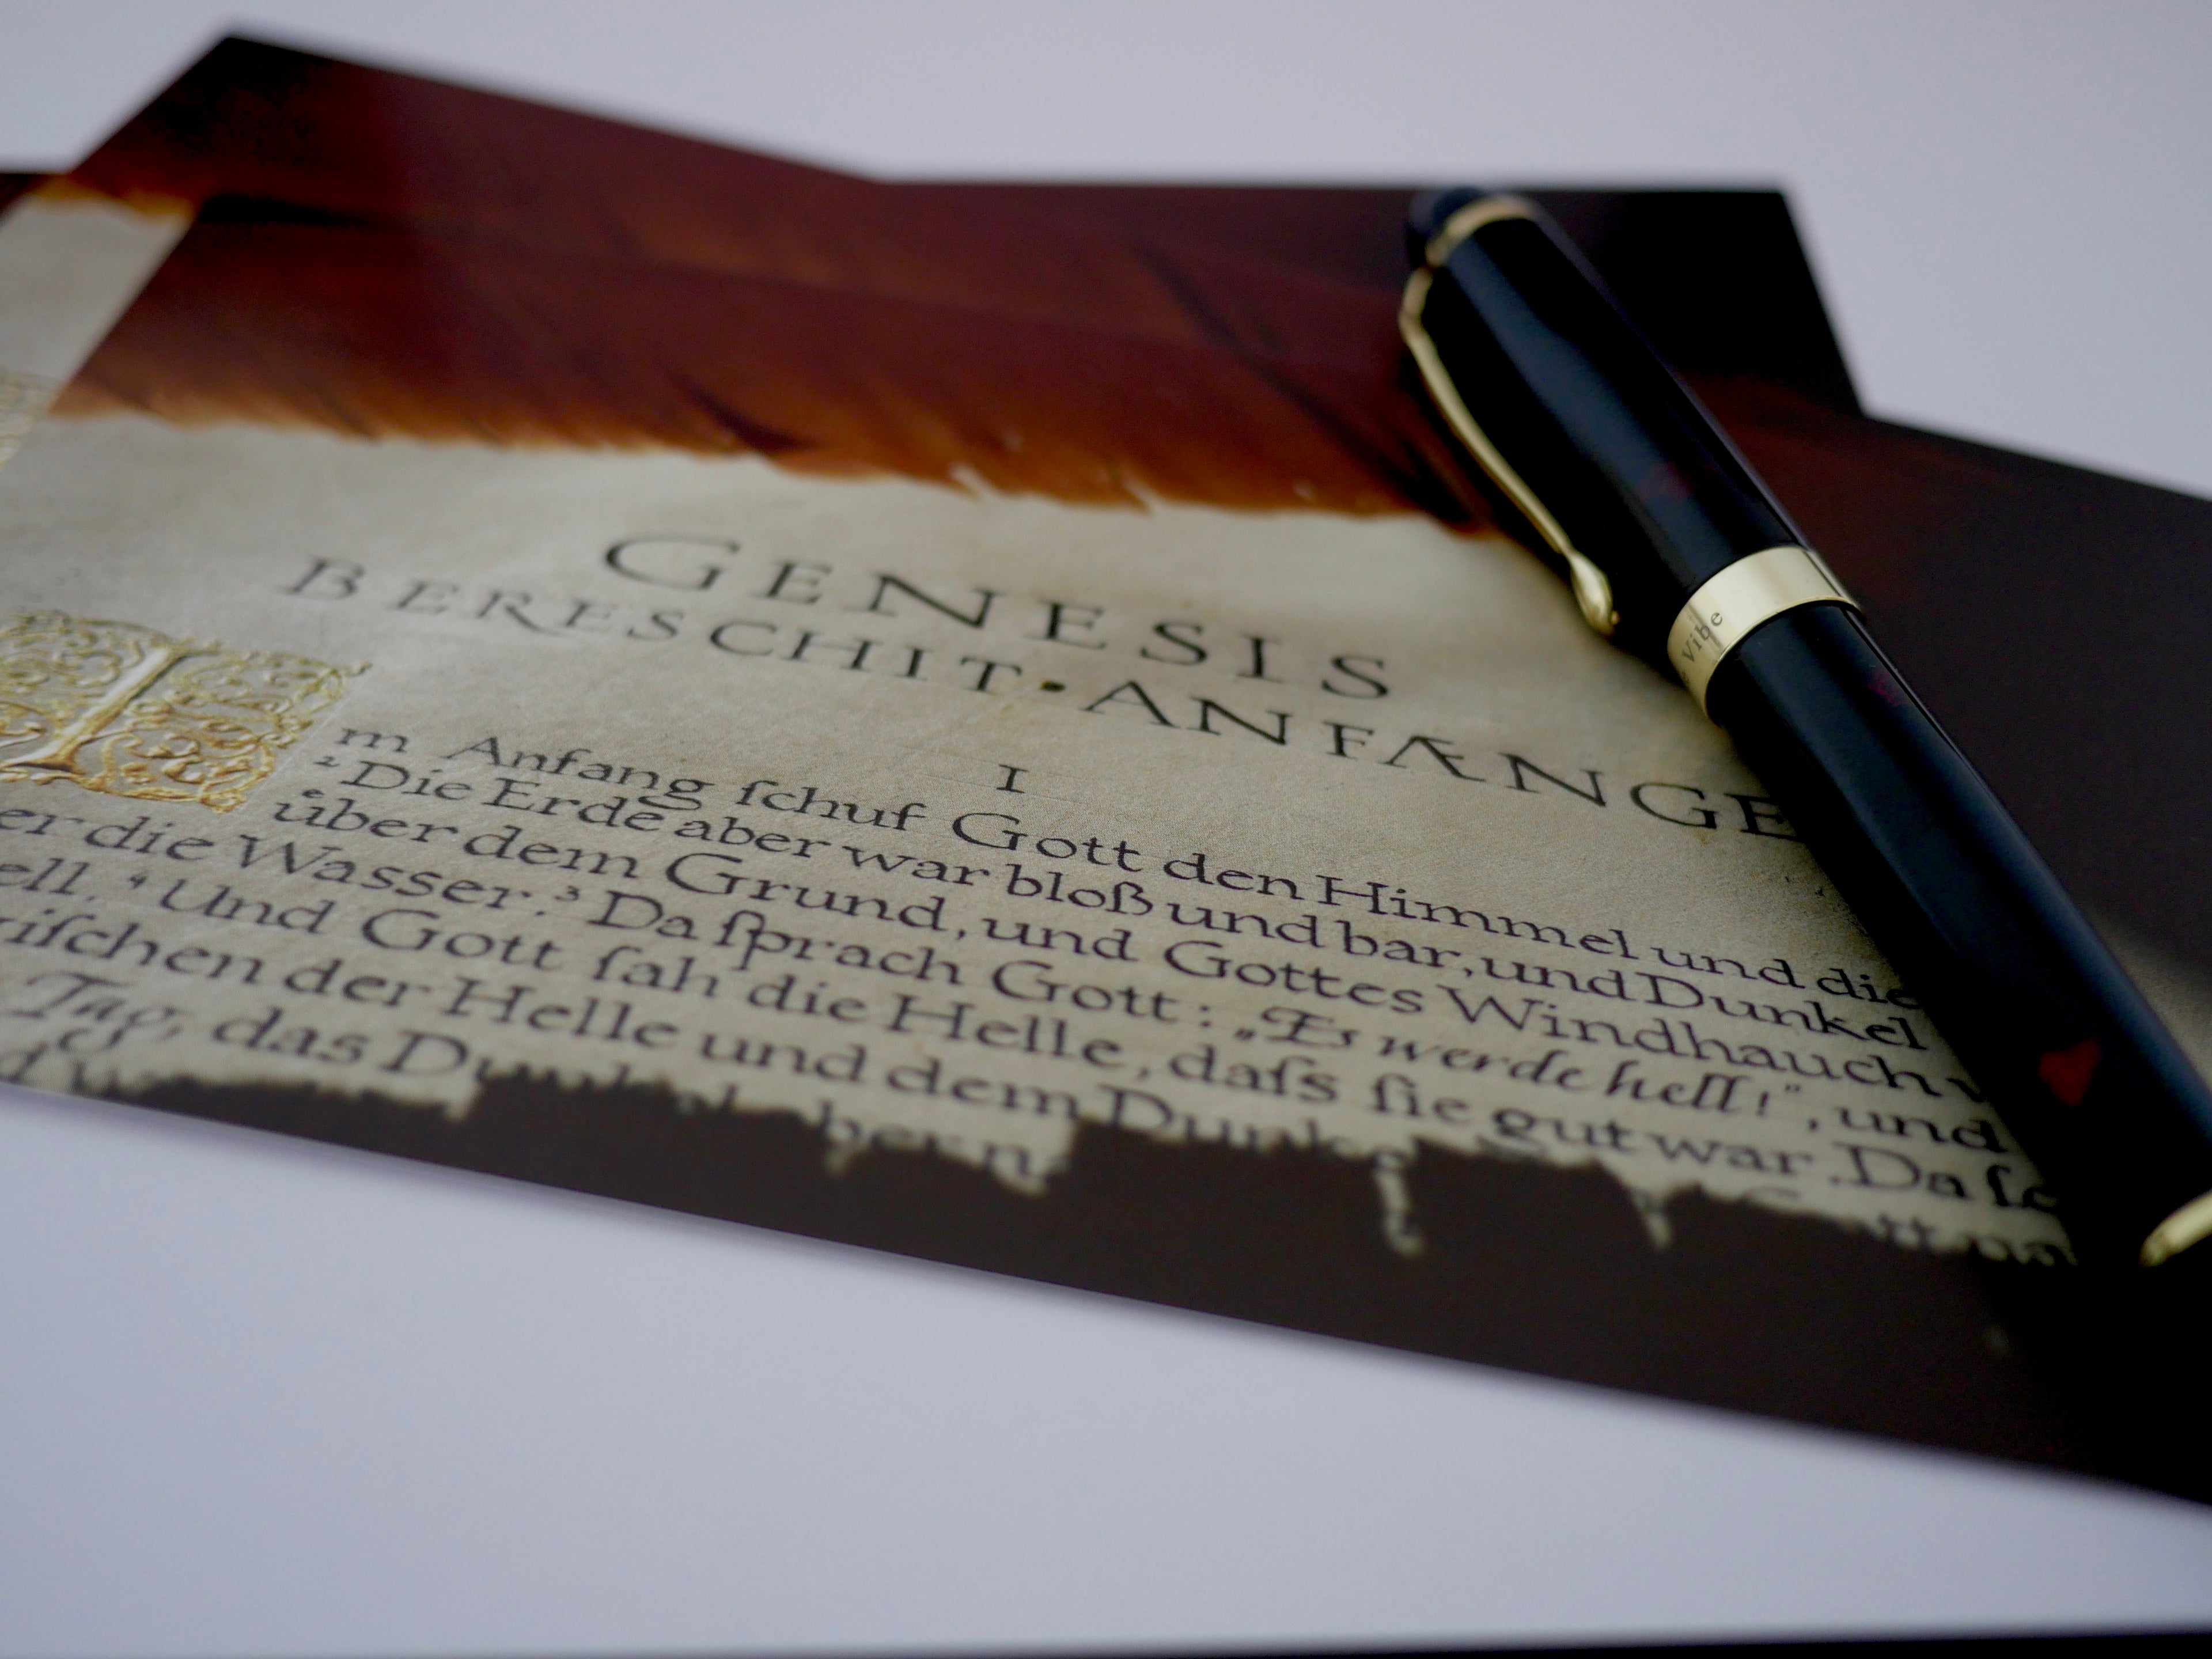 GENESIS
BERESCHIT • ANFÆNGE
I
Im Anfang ſchuf Gott den Himmel und die
² Die Erde aber war bloß und bar, und Dunkel
uͤber dem Grund, und Gottes Windhauch
die Wasser. ³ Da ſprach Gott: „Es werde hell!“, und
⁴ Und Gott ſah die Helle, daſs ſie gut war. Da
der Helle und dem
Tag, das
Vibe